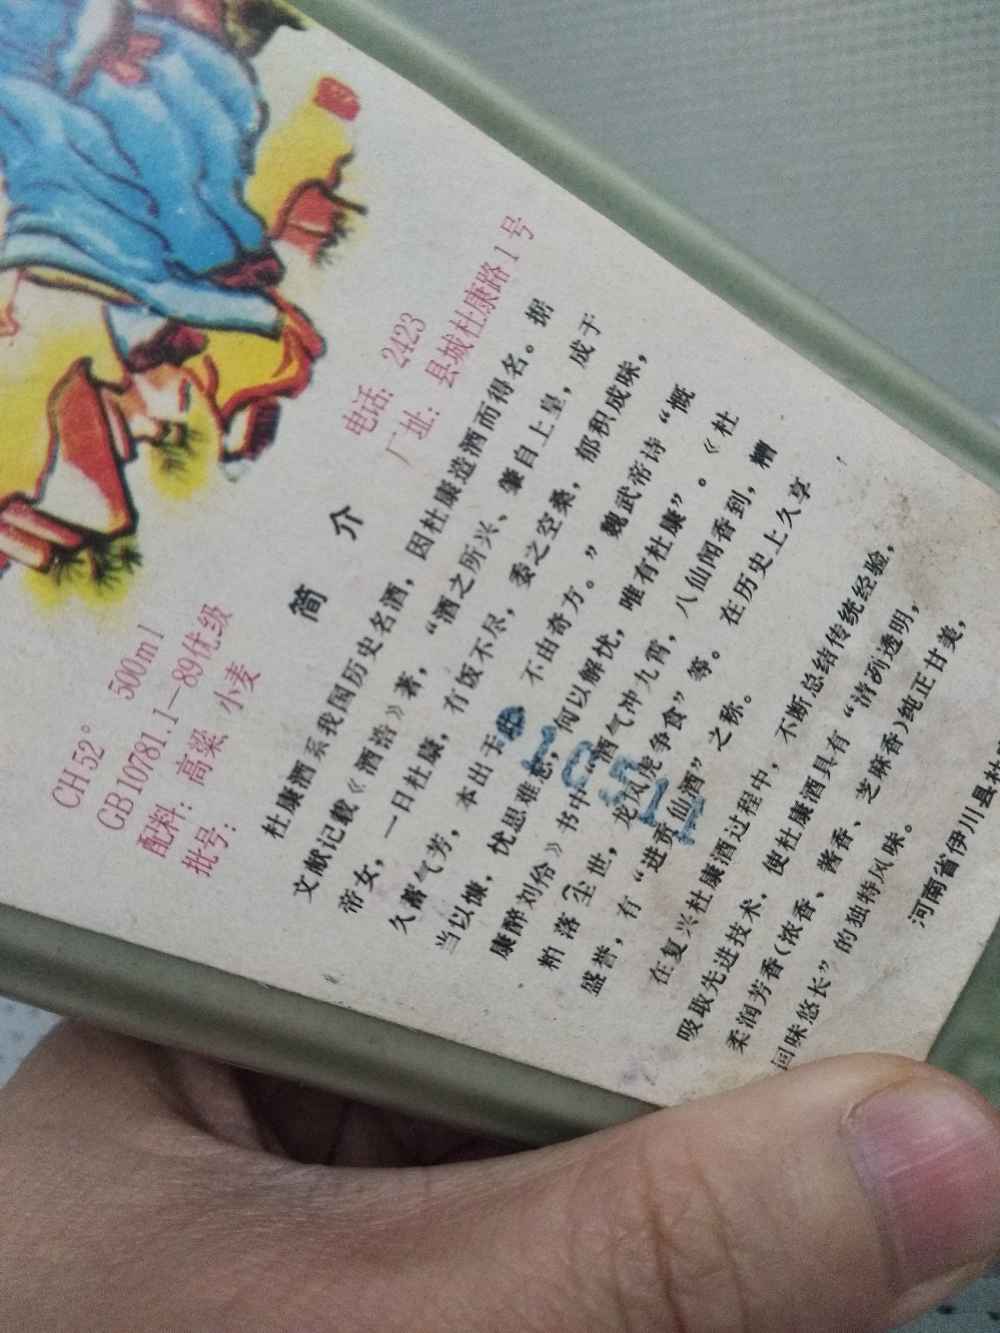 CH 52° 500ml
GB10781.1—89优级
配料：高粱 小麦
批号：
电话：2423
厂址：县城杜康路1号
简 介
杜康酒系我国历史名酒，因杜康造酒而得名。据
文献记载《酒诰》著，“酒之所兴、肇自上皇，成于
帝女，一日杜康，有饭不尽，委之空桑，郁积成味，
久蓄气芳，本出于 不由奇方。”魏武帝诗“慨
当以慷，忧思难 何以解忧，唯有杜康”。《杜
康醉刘伶》书中 酒气冲九霄，八仙闻香到，糟
粕落尘世，龙凤虎争食”等。在历史上久享
盛誉，有“进贡仙酒”之称。
在复兴杜康酒过程中，不断总结传统经验，
吸取先进技术，使杜康酒具有“清冽透明，
柔润芳香(浓香、酱香、芝麻香)纯正甘美，
回味悠长”的独特风味。
河南省伊川县杜